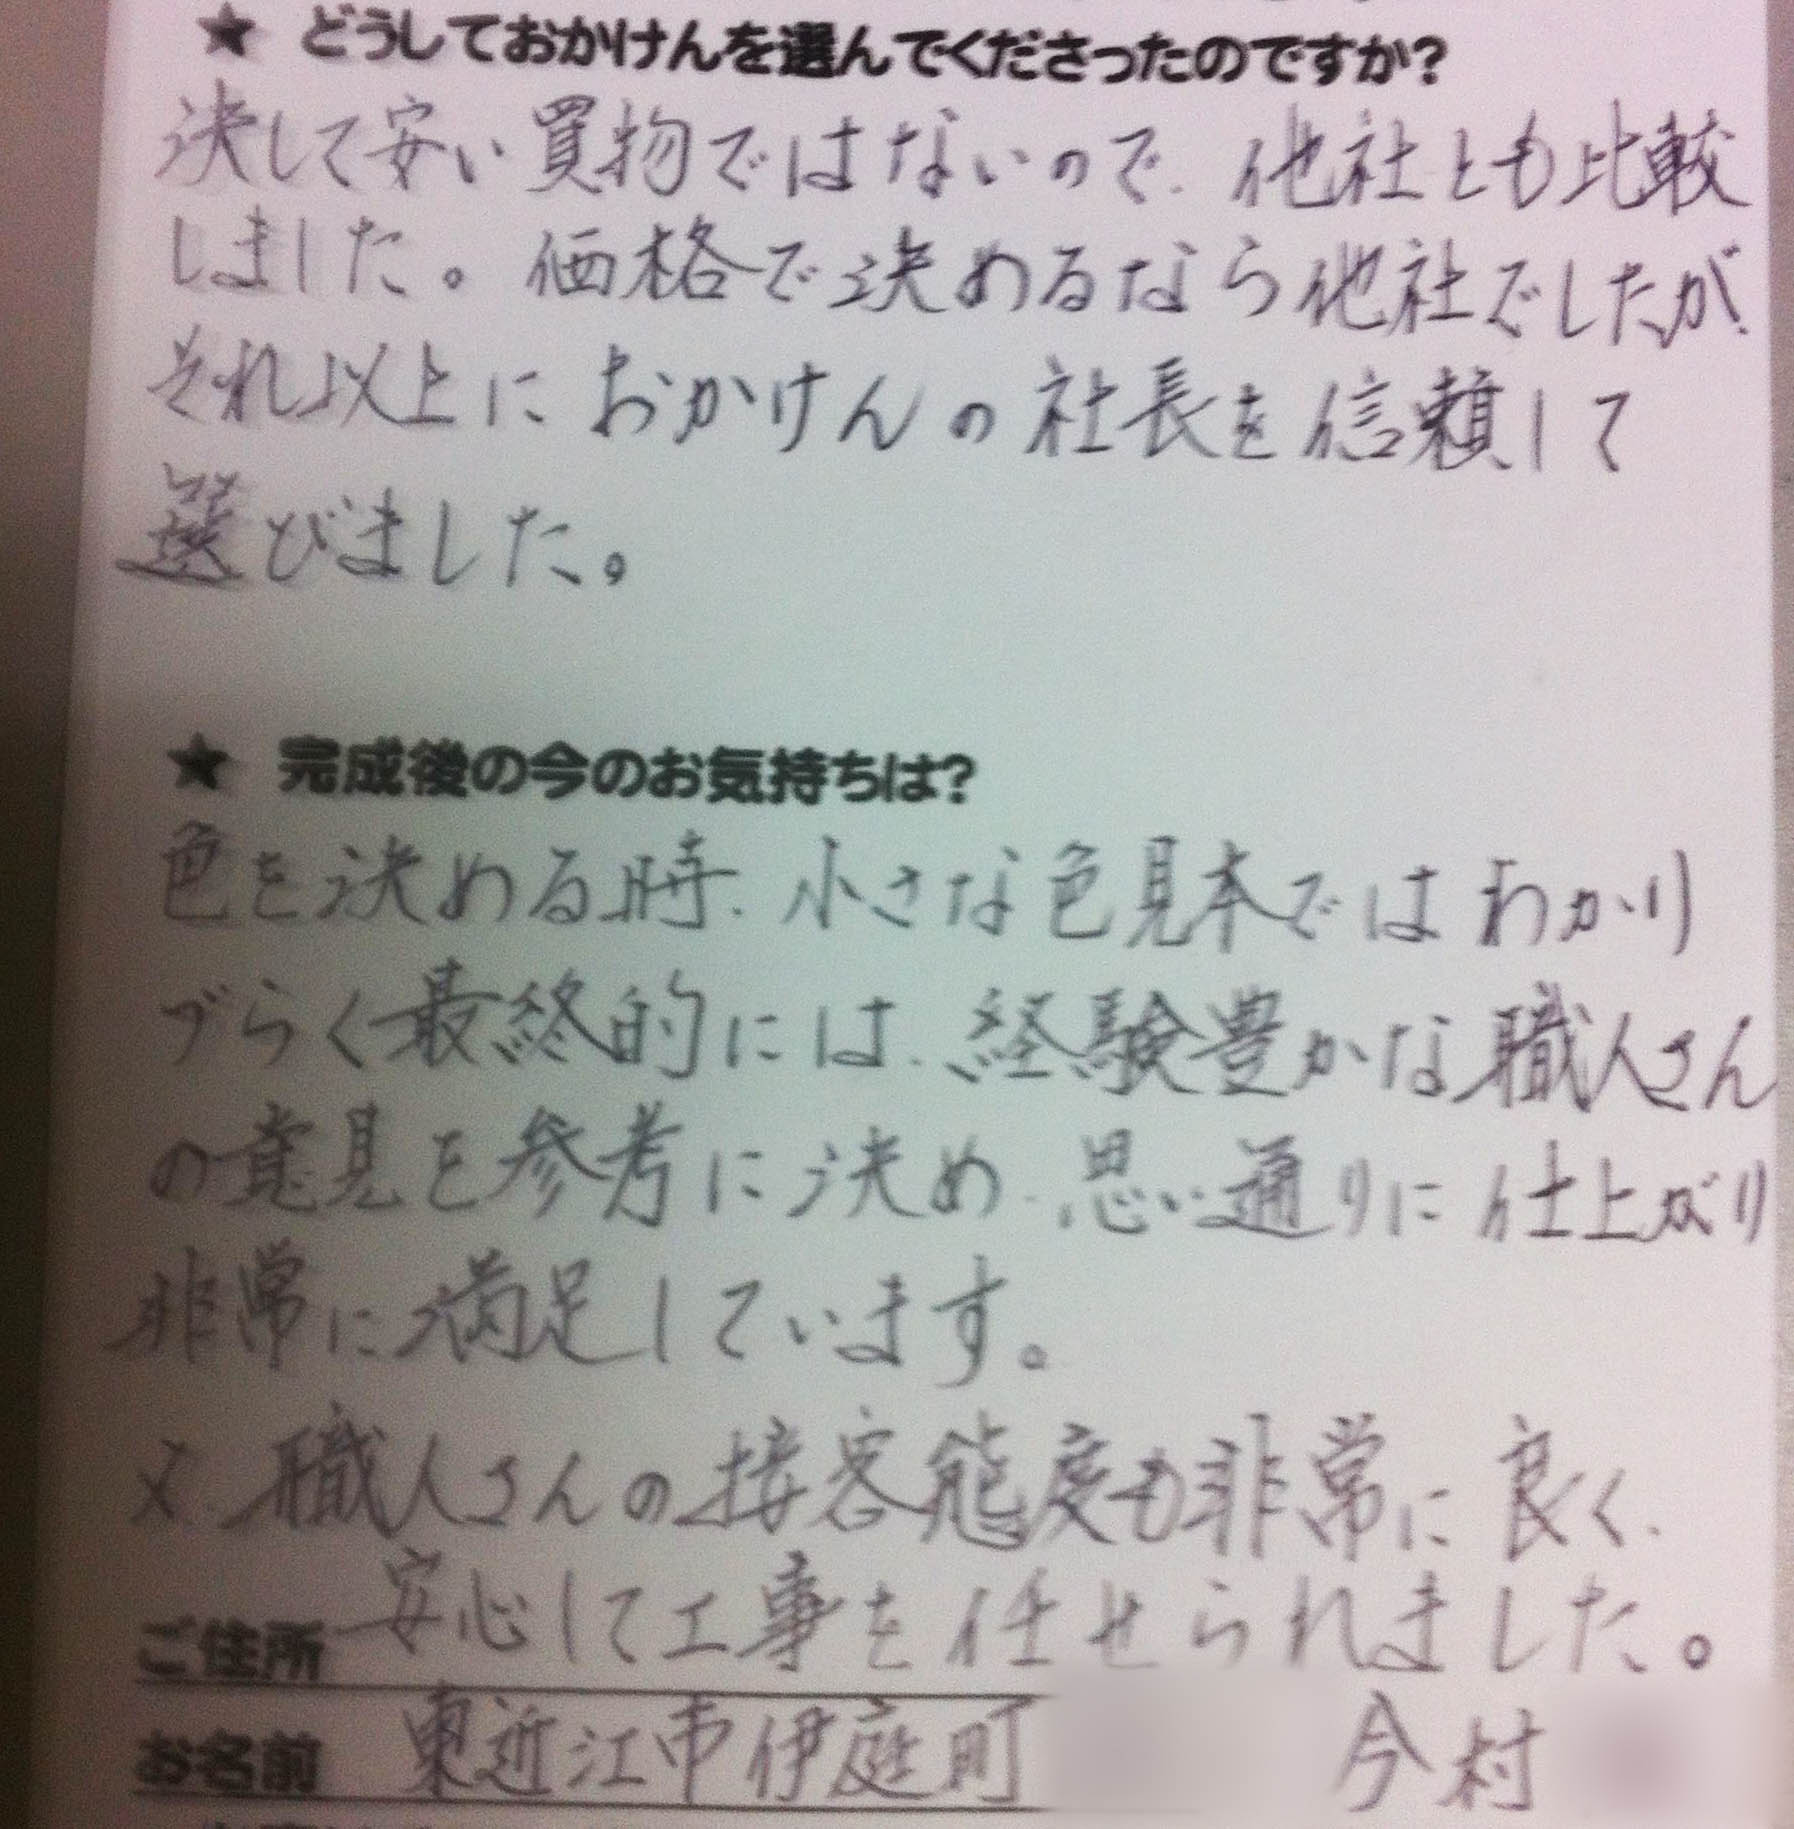 ★ どうしておかけんを選んでくださったのですか?
決して安い買物ではないので、他社とも比較
しました。価格で決めるなら他社でしたが、
それ以上におかけんの社長を信頼して
選びました。
★ 完成後の今のお気持ちは?
色を決める時、小さな色見本ではわかり
づらく最終的には、経験豊かな職人さん
の意見を参考に決め、思い通りに仕上がり
非常に満足しています。
又、職人さんの接客態度も非常に良く、
安心して工事を任せられました。
ご住所
お名前 東近江市伊庭町 今村